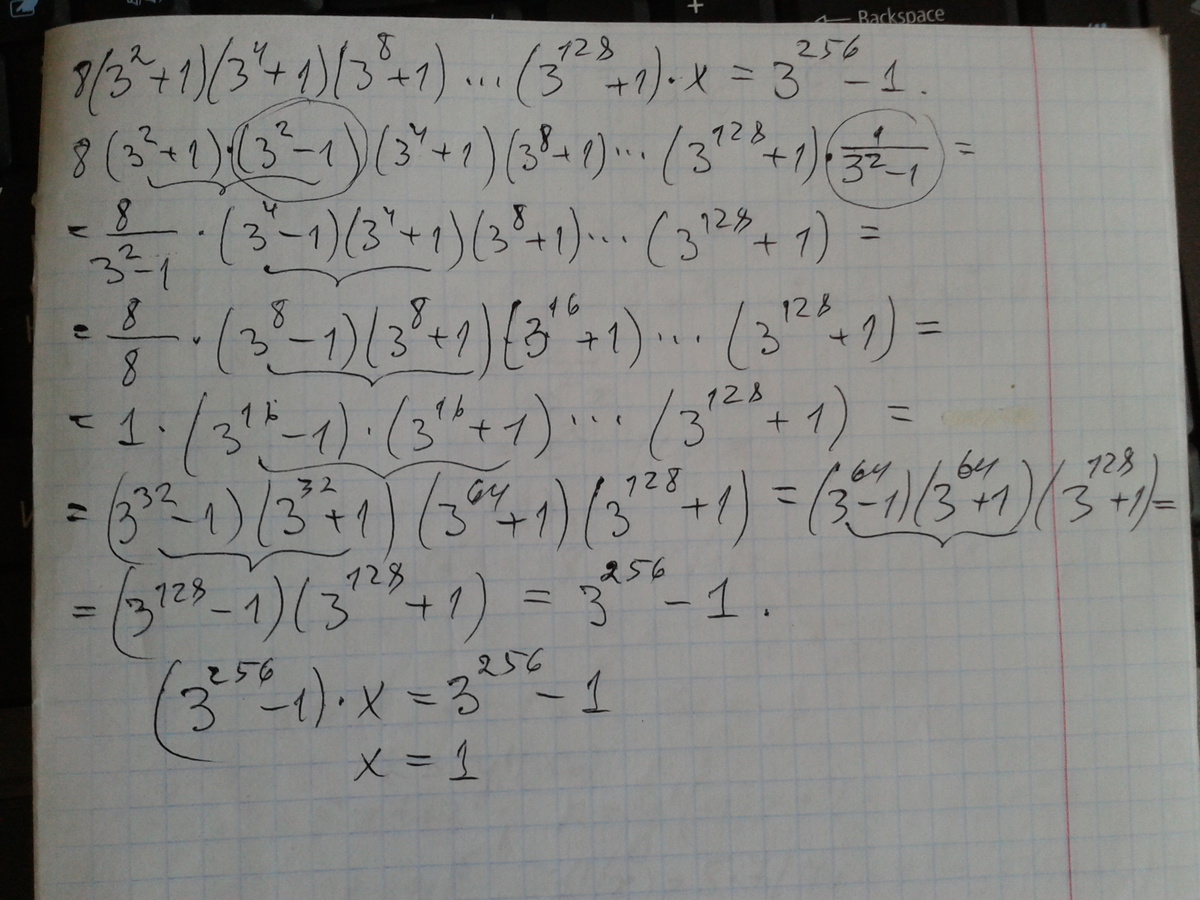 ← Backspace
8(3²+1)(3⁴+1)(3⁸+1)...(3¹²⁸+1)·x = 3²⁵⁶-1.
8(3²+1)·(3²-1)(3⁴+1)(3⁸+1)...(3¹²⁸+1)·1/(3²-1) =
= 8/(3²-1)·(3⁴-1)(3⁴+1)(3⁸+1)...(3¹²⁸+1) =
= 8/8·(3⁸-1)(3⁸+1)(3¹⁶+1)...(3¹²⁸+1) =
= 1·(3¹⁶-1)·(3¹⁶+1)...(3¹²⁸+1) =
= (3³²-1)(3³²+1)(3⁶⁴+1)(3¹²⁸+1) = (3⁶⁴-1)(3⁶⁴+1)(3¹²⁸+1) =
= (3¹²⁸-1)(3¹²⁸+1) = 3²⁵⁶-1.
(3²⁵⁶-1)·x = 3²⁵⁶-1
x = 1